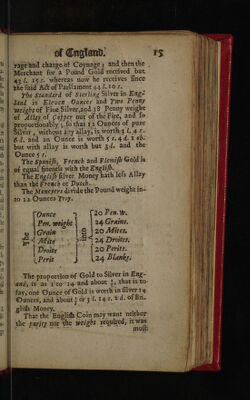 of England. 15
rage and charge of Coynage; and then the
Merchant for a Pound Gold received but
43 l. 15 s. whereas now he receives since
the said Act of Parliament 44 l. 10 s.
The Standard of Sterling Silver in Eng-
land is Eleven Ounces and Two Penny
weight of Fine Silver, and 18 Penny weight
of Allay of Copper out of the Fire, and so
proportionably; so that 12 Ounces of pure
Silver, without any allay, is worth 3 l. 4 s.
6 d. and an Ounce is worth 5 s. 4 d. 1 ob.
but with allay is worth but 3 l. and the
Ounce 5 s.
The Spanish, French and Flemish Gold is
of equal fineness with the English.
The English silver Money hath less Allay
than the French or Dutch.
The Moneyers divide the Pound weight in-
to 12 Ounces Troy.
The
Ounce
Pen. weight
Grain
Mite
Droite
Perit
into
20 Pen. w.
24 Grains.
20 Mites.
24 Droites.
20 Perits.
24 Blanks.
The proportion of Gold to Silver in Eng-
land, is as 1 to 14 and about, that is to
say, one Ounce of Gold is worth in silver 14
Ounces, and about or 3 l. 14 s. 2 d. of En-
glish Money.
That the English Coin may want neither
the purity nor the weight required, it was
most